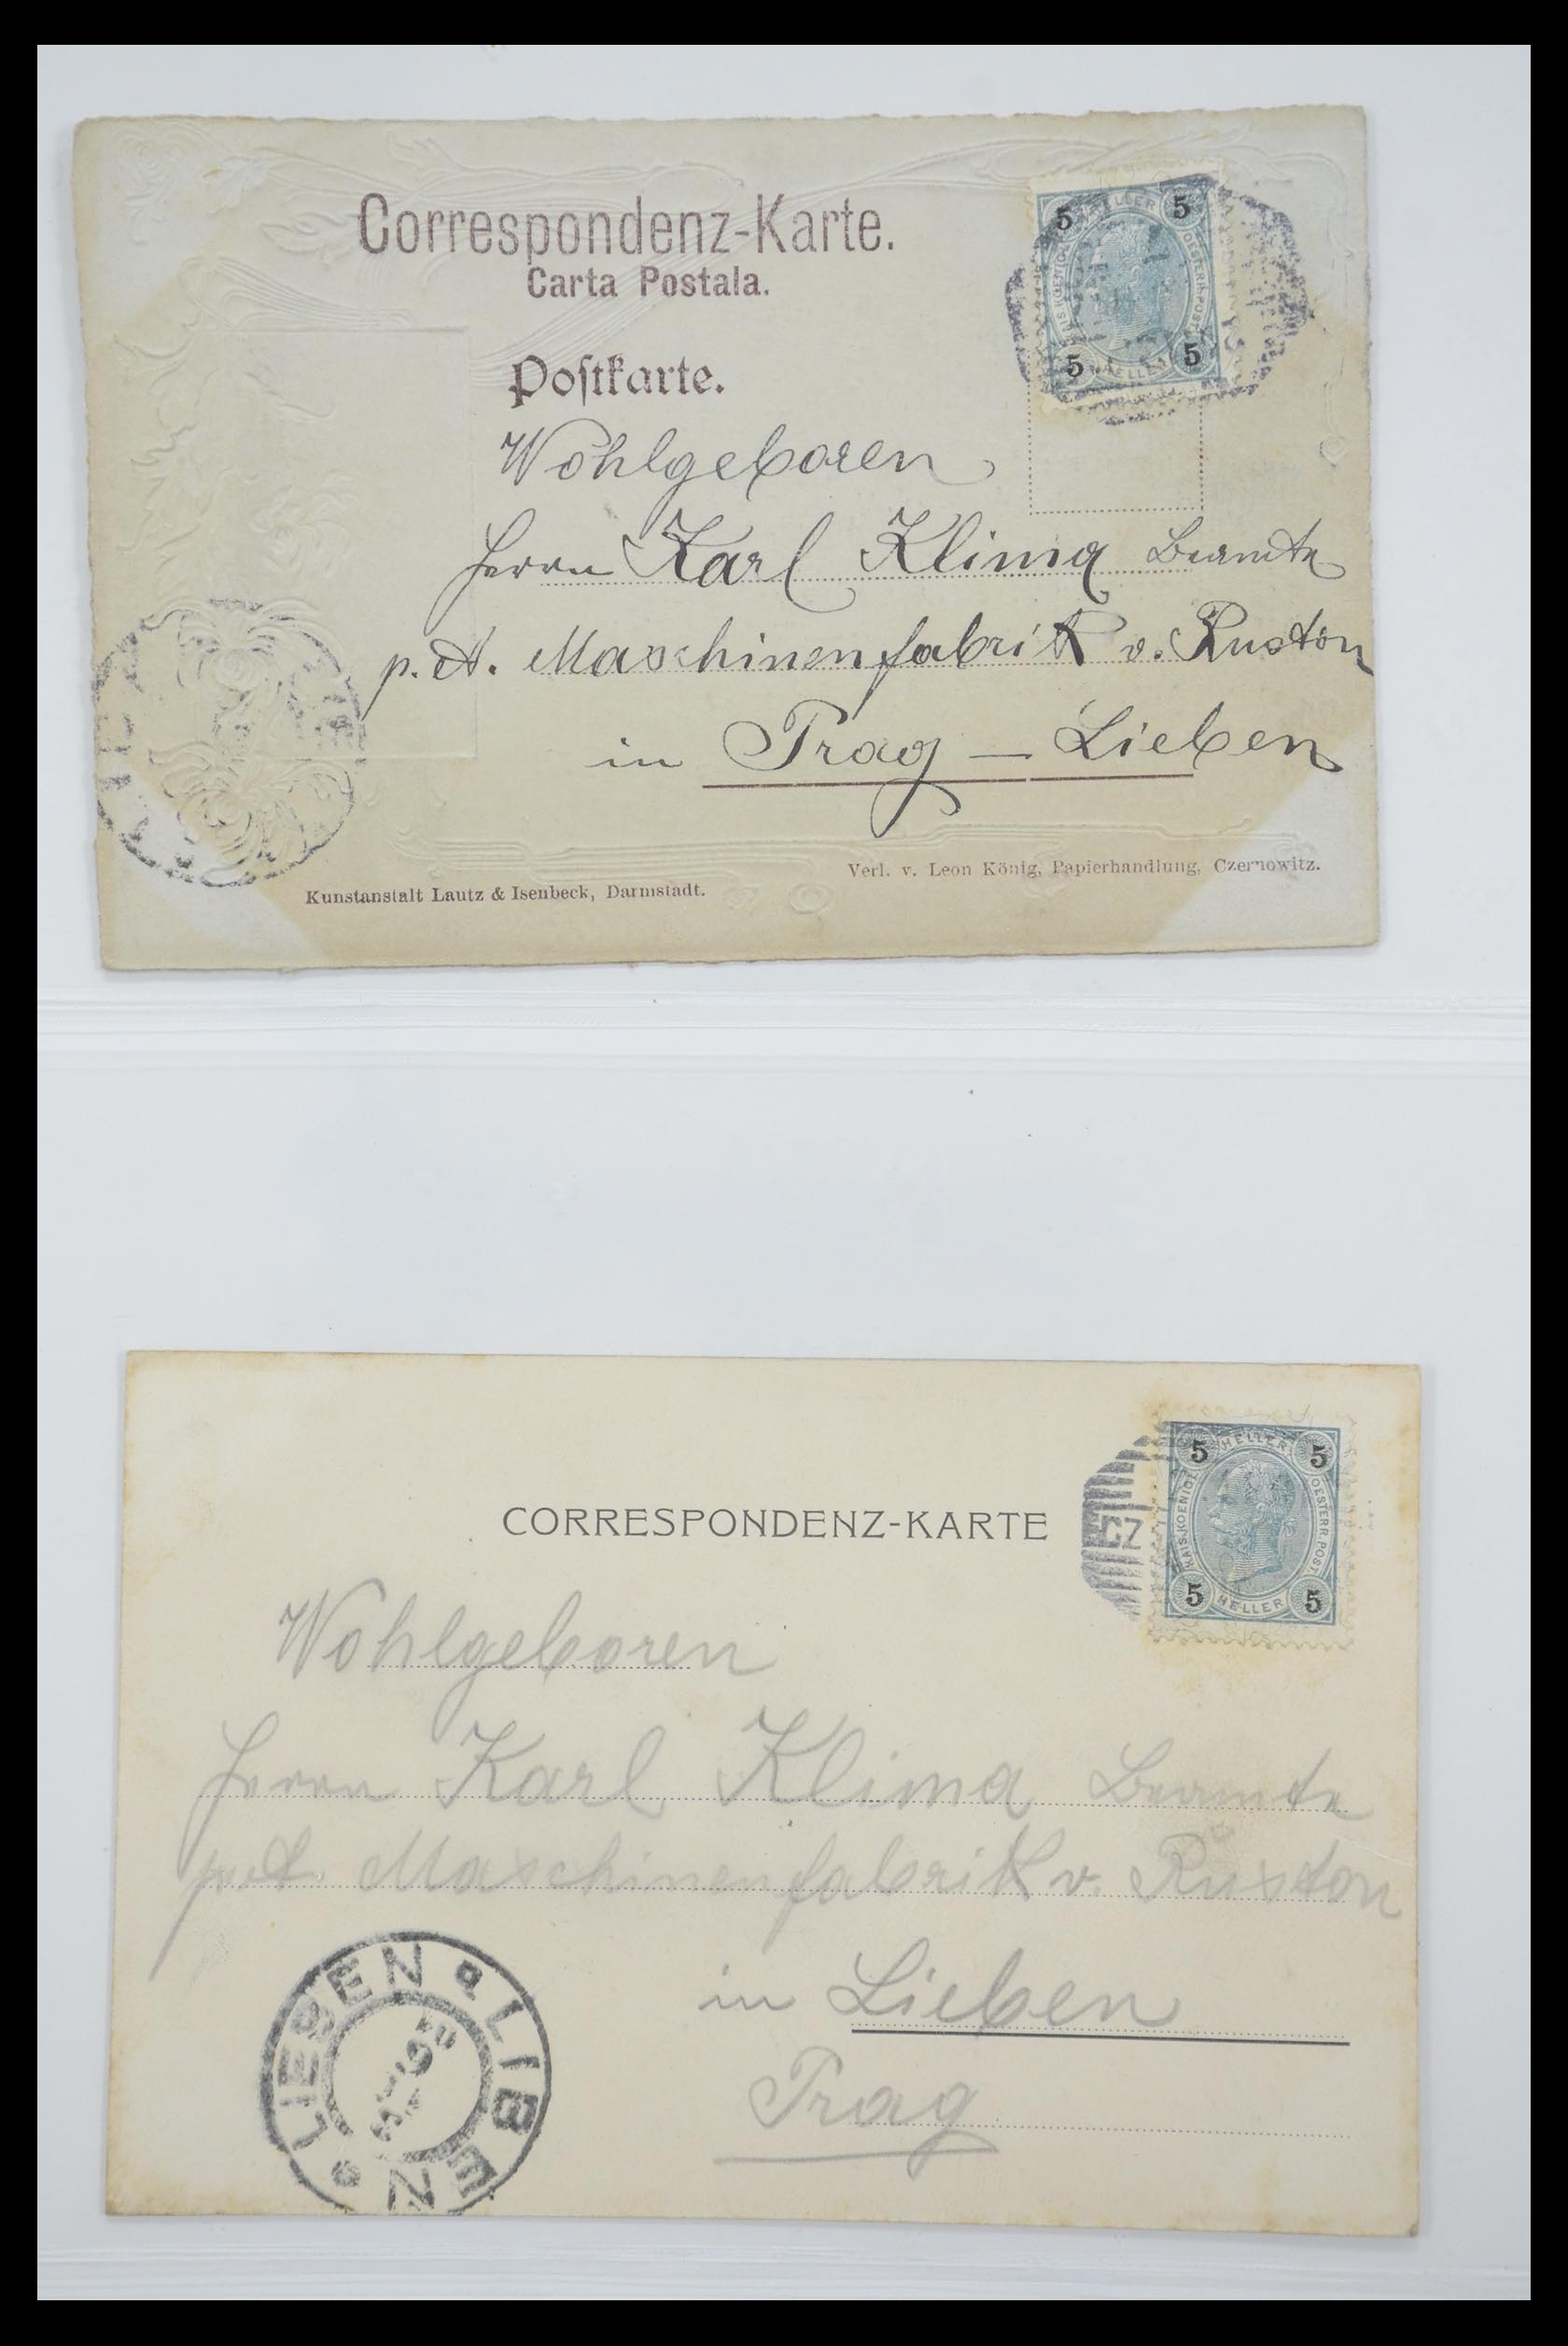 Correspondenz-Karte.
Carta Postala.
Postkarte.
5 HELLER 5
KAIS. KOENIGL. OESTERR. POST.
5 HELLER 5
Wohlgeboren
Herrn Karl Klima Beamte
p. A. Maschinenfabrik v. Ruston
in Prag – Lieben
Verl. v. Leon König, Papierhandlung, Czernowitz.
Kunstanstalt Lautz & Isenbeck, Darmstadt.
CORRESPONDENZ-KARTE
CZ
5 HELLER 5
KAIS. KOENIGL. OESTERR. POST.
5 HELLER 5
Wohlgeboren
Herrn Karl Klima Beamte
p. A. Maschinenfabrik v. Ruston
in Lieben
Prag
LIEBEN LIBEN